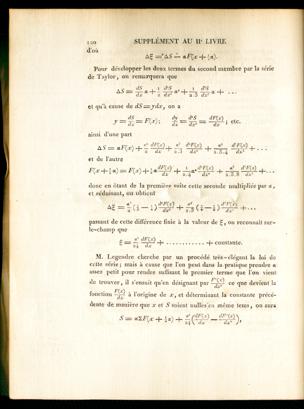 120 SUPPLÉMENT AU IIe LIVRE
d'où
Δξ = ΔS — aF(x + ½a).
Pour développer les deux termes du second membre par la série
de Taylor, on remarquera que
ΔS = dS/dx a + 1/2 d²S/dx² a² + 1/2.3 d³S/dx³ a³ + ...
et qu'à cause de dS = ydx, on a
y = dS/dx = F(x); dy/dx = d²S/dx² = dF(x)/dx; etc.
ainsi d'une part
ΔS = aF(x) + a²/2 dF(x)/dx + a³/2.3 d²F(x)/dx² + ...
et de l'autre
donc en ôtant de la première suite cette seconde multipliée par a,
et réduisant, on obtient
passant de cette différence finie à la valeur de ξ, on reconnaît sur-
le-champ que
ξ = a²/24 dF(x)/dx + ............ + constante.
M. Legendre cherche par un procédé très-élégant la loi de
cette série; mais à cause que l'on peut dans la pratique prendre a
assez petit pour rendre suffisant le premier terme que l'on vient
de trouver, il s'ensuit qu'en désignant par ce que devient la
fonction à l'origine de x, et déterminant la constante précé-
dente de manière que x et S soient nulles en même tems, on aura